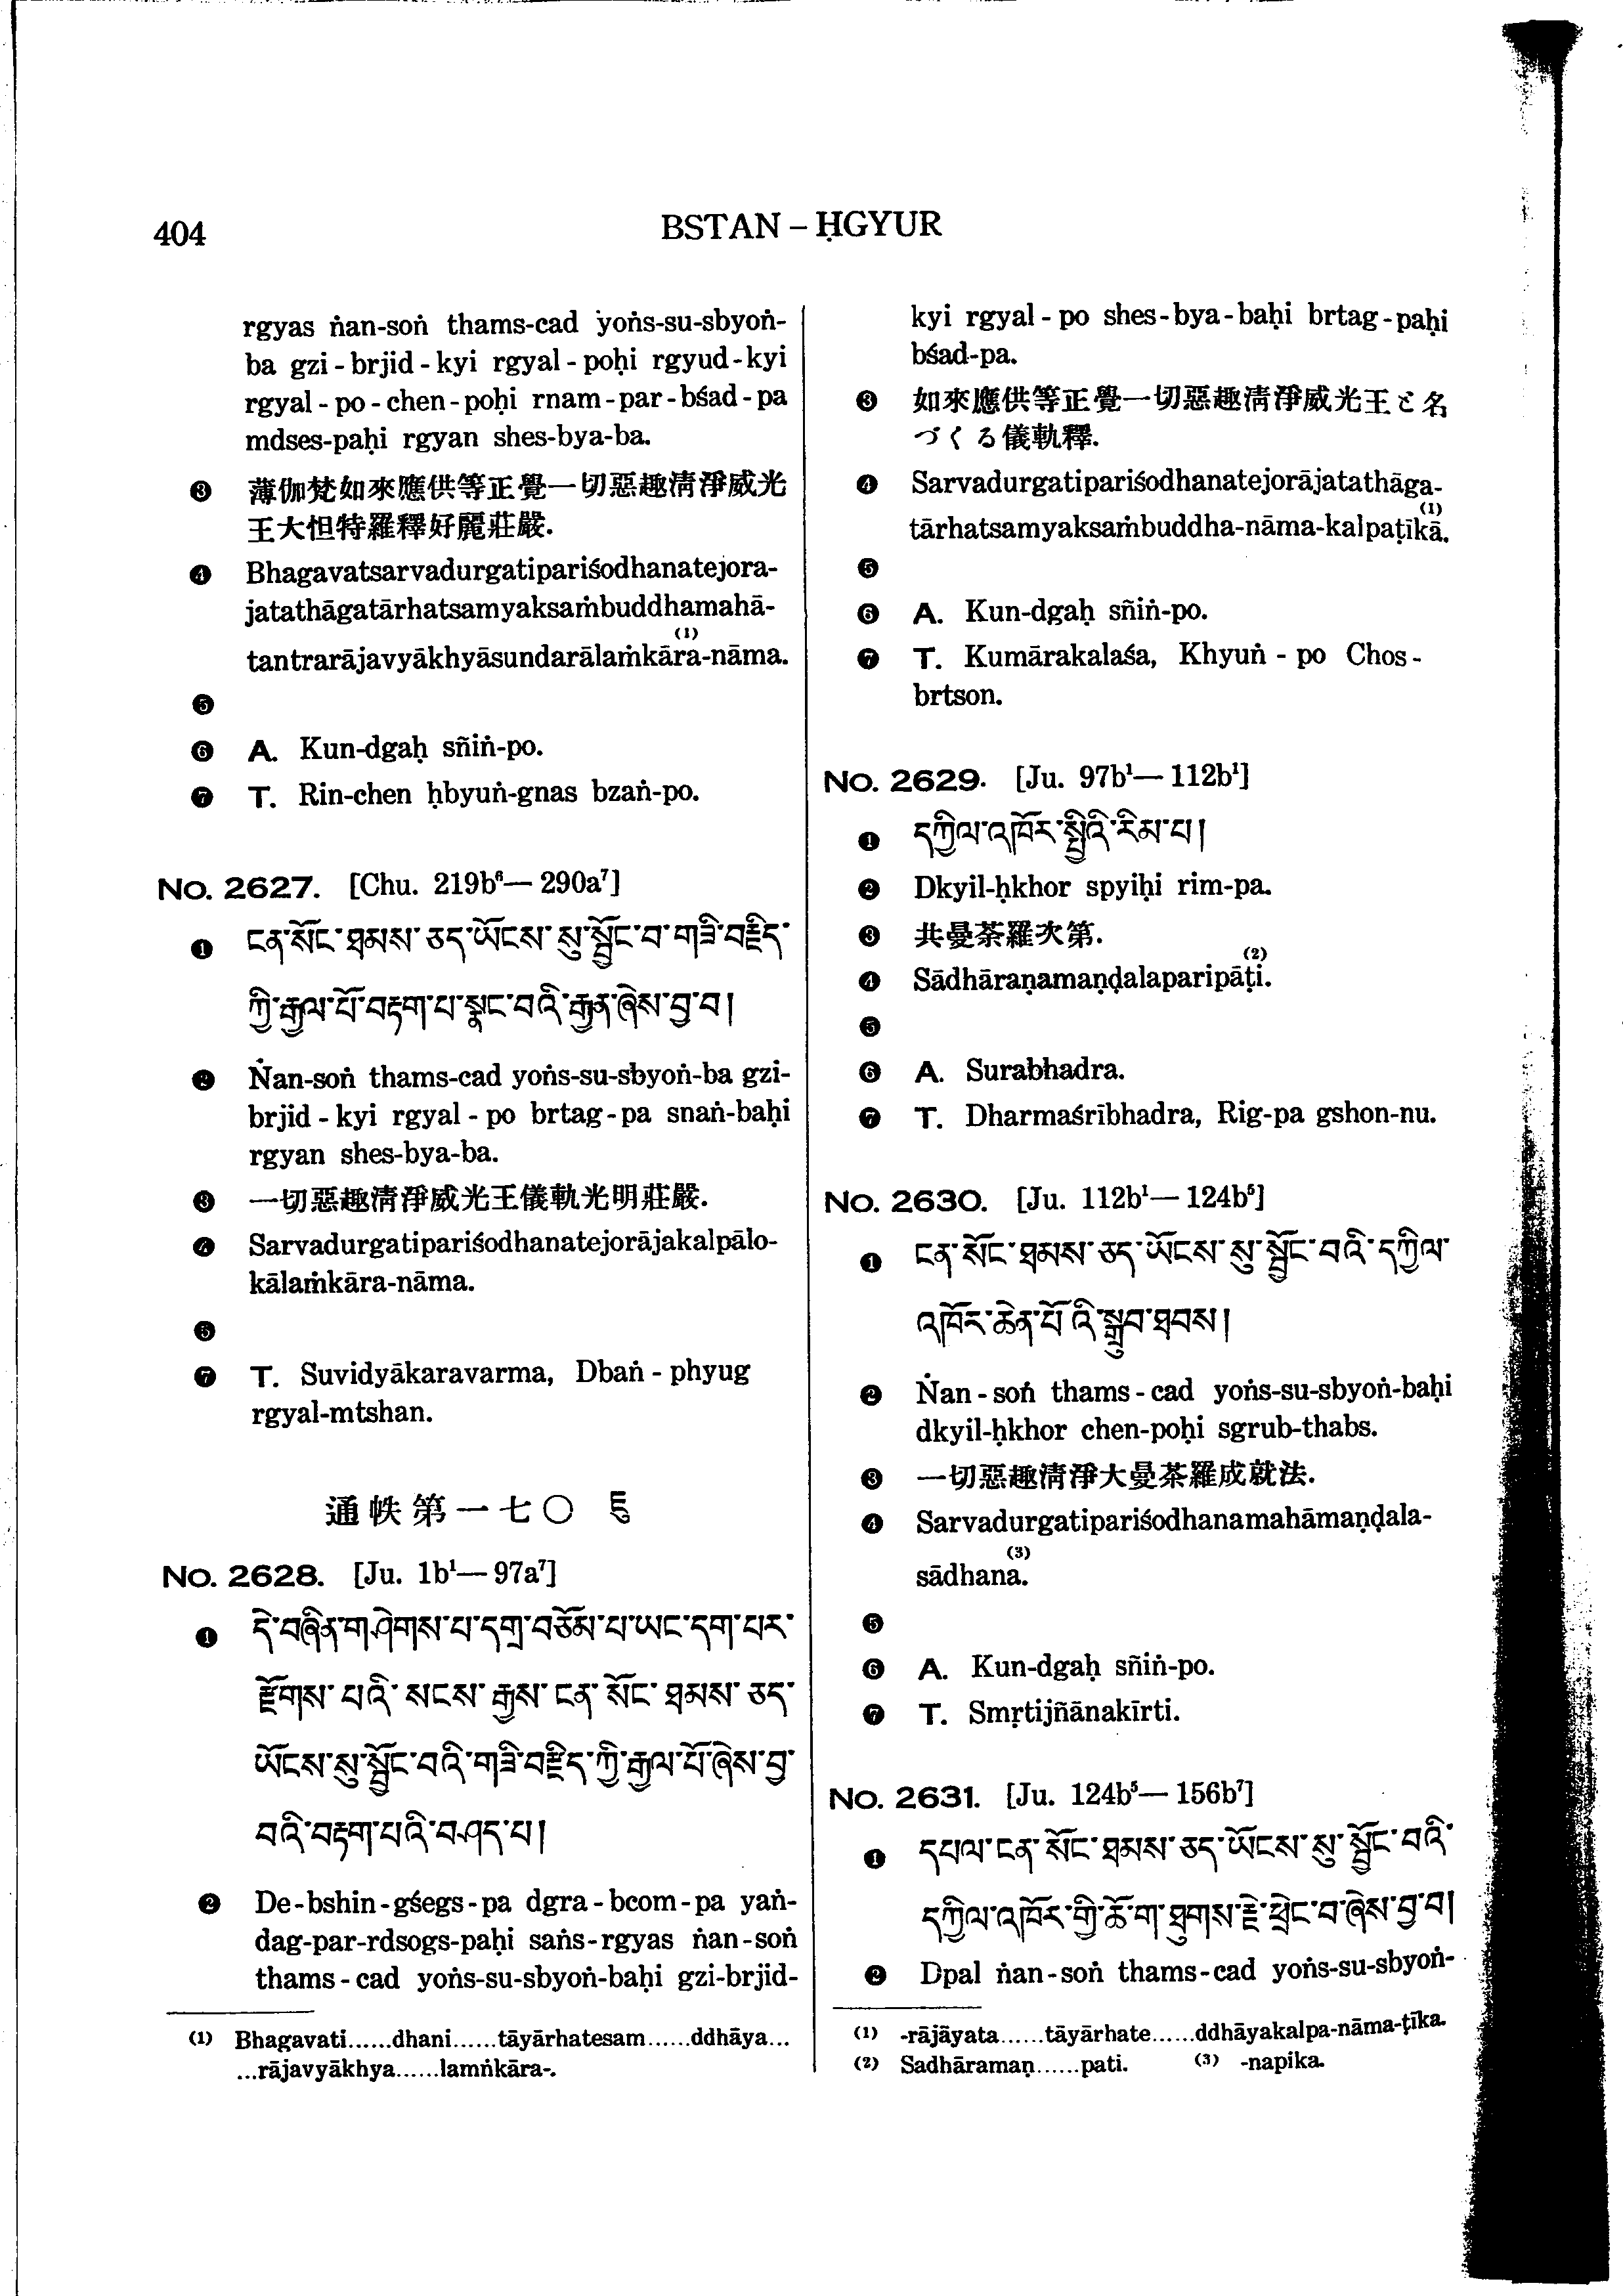 404
BSTAN – ḤGYUR
rgyas ṅan-soṅ thams-cad yoṅs-su-sbyoṅ-
ba gzi - brjid - kyi rgyal - poḥi rgyud - kyi
rgyal - po - chen - poḥi rnam - par - bśad - pa
mdses-paḥi rgyan shes-bya-ba.
❸ 薄伽梵如來應供等正覺一切惡趣淸淨威光
王大怛特羅釋好麗莊嚴.
❹ Bhagavatsarvadurgatipariśodhanatejora-
jatathāgatārhatsamyaksaṁbuddhamahā-
tantrarājavyākhyāsundarālaṁkāra-nāma.(1)
❺
❻ A. Kun-dgaḥ sñiṅ-po.
❼ T. Rin-chen ḥbyuṅ-gnas bzaṅ-po.
No. 2627. [Chu. 219b⁶— 290a⁷]
❶ ངན་སོང་ཐམས་ཅད་ཡོངས་སུ་སྦྱོང་བ་གཟི་བརྗིད་
ཀྱི་རྒྱལ་པོ་བརྟག་པ་སྣང་བའི་རྒྱན་ཞེས་བྱ་བ།
❷ Ṅan-soṅ thams-cad yoṅs-su-sbyoṅ-ba gzi-
brjid - kyi rgyal - po brtag - pa snaṅ-baḥi
rgyan shes-bya-ba.
❸ 一切惡趣淸淨威光王儀軌光明莊嚴.
❹ Sarvadurgatipariśodhanatejorājakalpālo-
kālaṁkāra-nāma.
❺
❼ T. Suvidyākaravarma, Dbaṅ - phyug
rgyal-mtshan.
通帙第一七〇 ཇུ
No. 2628. [Ju. 1b¹— 97a⁷]
❶ དེ་བཞིན་གཤེགས་པ་དགྲ་བཅོམ་པ་ཡང་དག་པར་
རྫོགས་པའི་སངས་རྒྱས་ངན་སོང་ཐམས་ཅད་
ཡོངས་སུ་སྦྱོང་བའི་གཟི་བརྗིད་ཀྱི་རྒྱལ་པོ་ཞེས་བྱ་
བའི་བརྟག་པའི་བཤད་པ།
❷ De - bshin - gśegs - pa dgra - bcom - pa yaṅ-
dag-par-rdsogs-paḥi saṅs-rgyas ṅan-soṅ
thams - cad yoṅs-su-sbyoṅ-baḥi gzi-brjid-
(1) Bhagavati......dhani......tāyārhatesam......ddhāya...
...rājavyākhya......lamṅkāra-.
kyi rgyal - po shes - bya - baḥi brtag - paḥi
bśad-pa.
❸ 如來應供等正覺一切惡趣淸淨威光王と名
づくる儀軌釋.
❹ Sarvadurgatipariśodhanatejorājatathāga-
tārhatsamyaksaṁbuddha-nāma-kalpaṭīkā.(1)
❺
❻ A. Kun-dgaḥ sñiṅ-po.
❼ T. Kumārakalaśa, Khyuṅ - po Chos -
brtson.
No. 2629. [Ju. 97b¹— 112b¹]
❶ དཀྱིལ་འཁོར་སྤྱིའི་རིམ་པ།
❷ Dkyil-ḥkhor spyiḥi rim-pa.
❸ 共曼荼羅次第.
❹ Sādhāraṇamaṇḍalaparipāṭi.(2)
❺
❻ A. Surabhadra.
❼ T. Dharmaśrībhadra, Rig-pa gshon-nu.
No. 2630. [Ju. 112b¹— 124b⁵]
❶ ངན་སོང་ཐམས་ཅད་ཡོངས་སུ་སྦྱོང་བའི་དཀྱིལ་
འཁོར་ཆེན་པོའི་སྒྲུབ་ཐབས།
❷ Ṅan - soṅ thams - cad yoṅs-su-sbyoṅ-baḥi
dkyil-ḥkhor chen-poḥi sgrub-thabs.
❸ 一切惡趣淸淨大曼荼羅成就法.
❹ Sarvadurgatipariśodhanamahāmaṇḍala-
sādhana.(3)
❺
❻ A. Kun-dgaḥ sñiṅ-po.
❼ T. Smṛtijñānakīrti.
No. 2631. [Ju. 124b⁵— 156b⁷]
❶ དཔལ་ངན་སོང་ཐམས་ཅད་ཡོངས་སུ་སྦྱོང་བའི་
དཀྱིལ་འཁོར་གྱི་ཆོ་ག་ཐུགས་རྗེ་ཕྲེང་བ་ཞེས་བྱ་བ།
❷ Dpal ṅan-soṅ thams-cad yoṅs-su-sbyoṅ-
(1) -rājāyata......tāyārhate......ddhāyakalpa-nāma-ṭīka.
(2) Sadhāramaṇ......pati. (3) -napika.